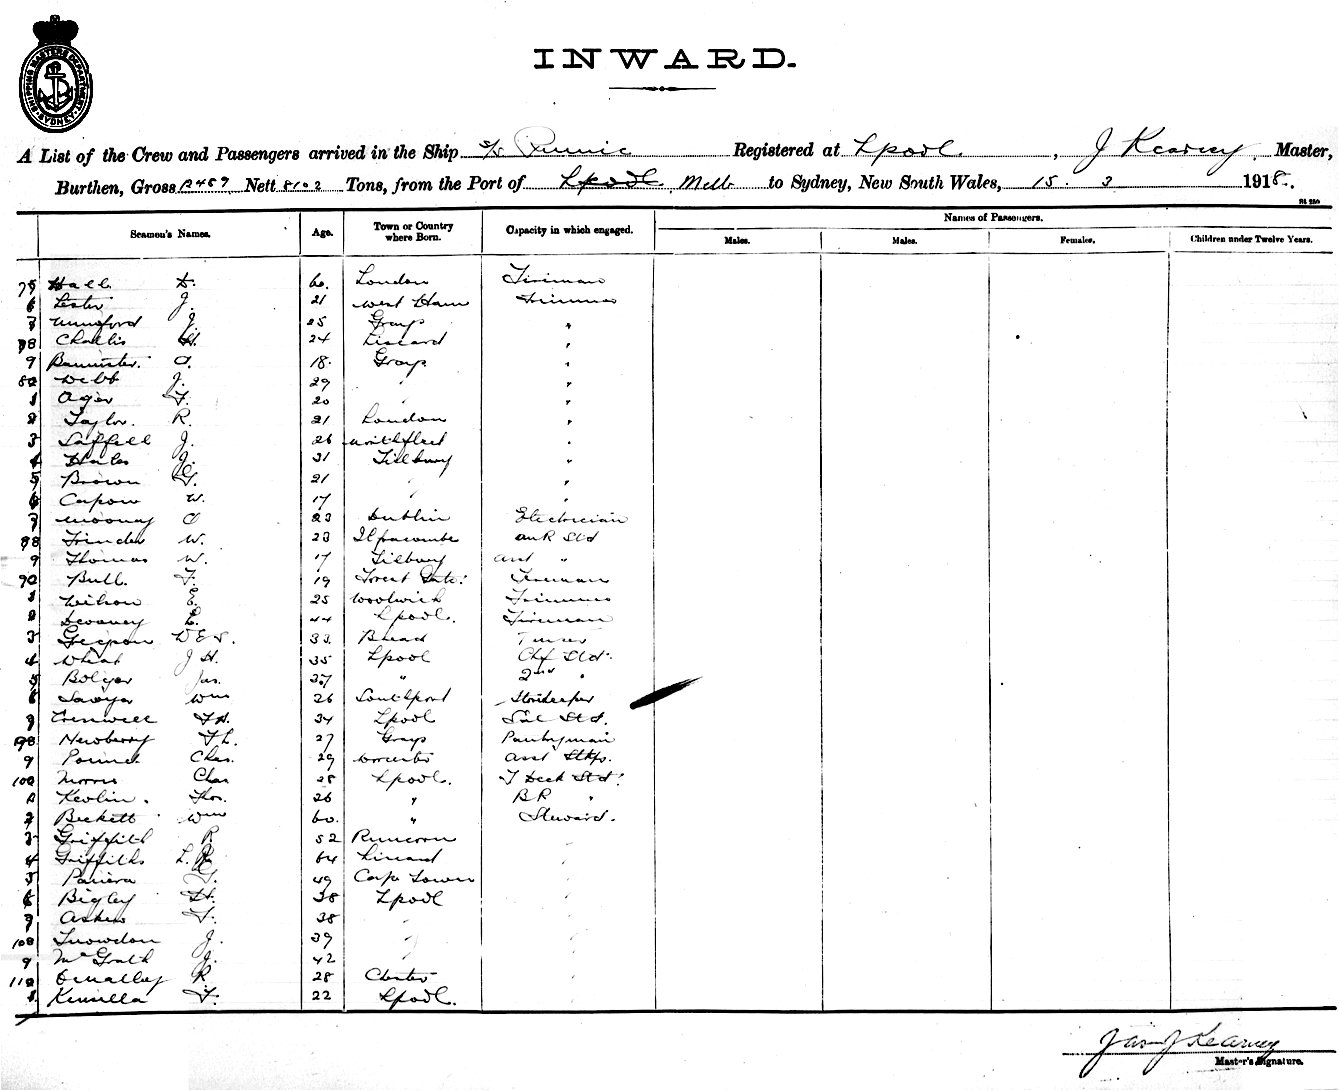 SHIPPING MASTERS DEPARTMENT SYDNEY
INWARD.
A List of the Crew and Passengers arrived in the Ship S/S Runic Registered at Lpool, J Kearney, Master,
Burthen, Gross 12489 Nett 8102 Tons, from the Port of Lpool Melb to Sydney, New South Wales, 15. 3 1918.
Seamen's Names. Age. Town or Country where Born. Capacity in which engaged. Names of Passengers.
Males. Males. Females. Children under Twelve Years.
75 Hall 6. London Fireman
6 Lester J. 21 West Ham Trimmer
7 Mumford J. 25 Grays "
78 Challis H. 24 Liscard "
9 Bannister. 18. Grays "
80 Webb J. 29 " "
1 Ager F. 20 " "
2 Taylor. R. 21 London "
3 Saffell J. 26 Northfleet "
4 Hales J. 31 Tilbury "
5 Brown 21 " "
6 Capon W. 17 " "
7 Mooney 23 Dublin Electrician
88 Trinder W. 23 Ilfracombe Std
9 Thomas W. 17 Tilbury Asst "
90 Bull F. 19 Forest Gate. Fireman
1 Wilson E. 25 Woolwich Trimmer
2 Devaney 44 Lpool. Fireman
3 W E S. 33 Purser
4 Wheat J H. 35 Lpool Chf Std.
5 Bolger Jas. 37 " 2nd "
6 Sawyer Wm 26 Southport Storekeeper
7 F H. 34 Lpool Sal Std.
98 Newberry F L. 27 Grays Pantryman
9 Chas. 29 Worcester Asst Stkp.
100 Morris Chas 28 Lpool. T Deck Std.
1 Kevlin. Thos. 26 " B R "
2 Beckett Wm 60. " Steward.
3 Griffith R 52 Runcorn "
4 Griffiths L. 64 Liscard "
5 49 Cape Town "
6 Bigley H. 38 Lpool "
7 Askew F. 38 " "
108 Snowdon J. 39 " "
9 McGrath J. 42 " "
110 Omalley R 28 Chester "
1 Kinsella F. 22 Lpool. "
Jas J Kearney
Master's Signature.